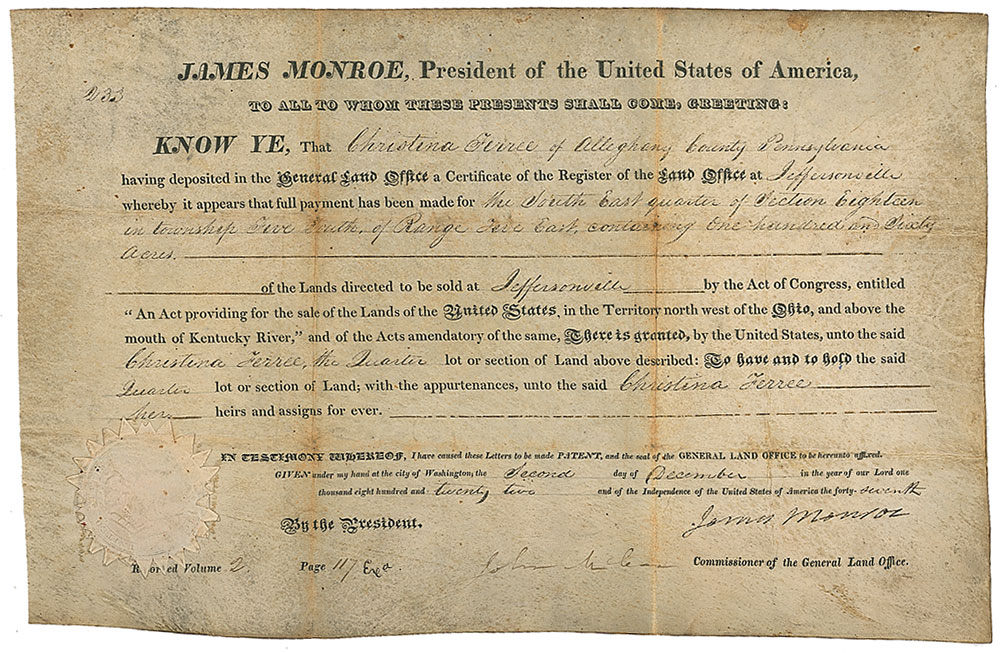 JAMES MONROE, President of the United States of America,
233
TO ALL TO WHOM THESE PRESENTS SHALL COME, GREETING:
KNOW YE, That Christina Ferree of Alleghany County Pennsylvania
having deposited in the General Land Office a Certificate of the Register of the Land Office at Jeffersonville
whereby it appears that full payment has been made for the South East quarter of Section Eighteen
in township Five South, of Range Five East, containing One hundred and Sixty
Acres.
of the Lands directed to be sold at Jeffersonville by the Act of Congress, entitled
"An Act providing for the sale of the Lands of the United States, in the Territory north west of the Ohio, and above the
mouth of Kentucky River," and of the Acts amendatory of the same, There is granted, by the United States, unto the said
Christina Ferree, the Quarter lot or section of Land above described: To have and to hold the said
Quarter lot or section of Land; with the appurtenances, unto the said Christina Ferree
her heirs and assigns for ever.
IN TESTIMONY WHEREOF, I have caused these Letters to be made PATENT, and the seal of the GENERAL LAND OFFICE to be hereunto affixed.
GIVEN under my hand at the city of Washington, the Second day of December in the year of our Lord one
thousand eight hundred and twenty two and of the Independence of the United States of America the forty-seventh
By the President. James Monroe
Recorded Volume 2. Page 117 Exa. John McLean Commissioner of the General Land Office.